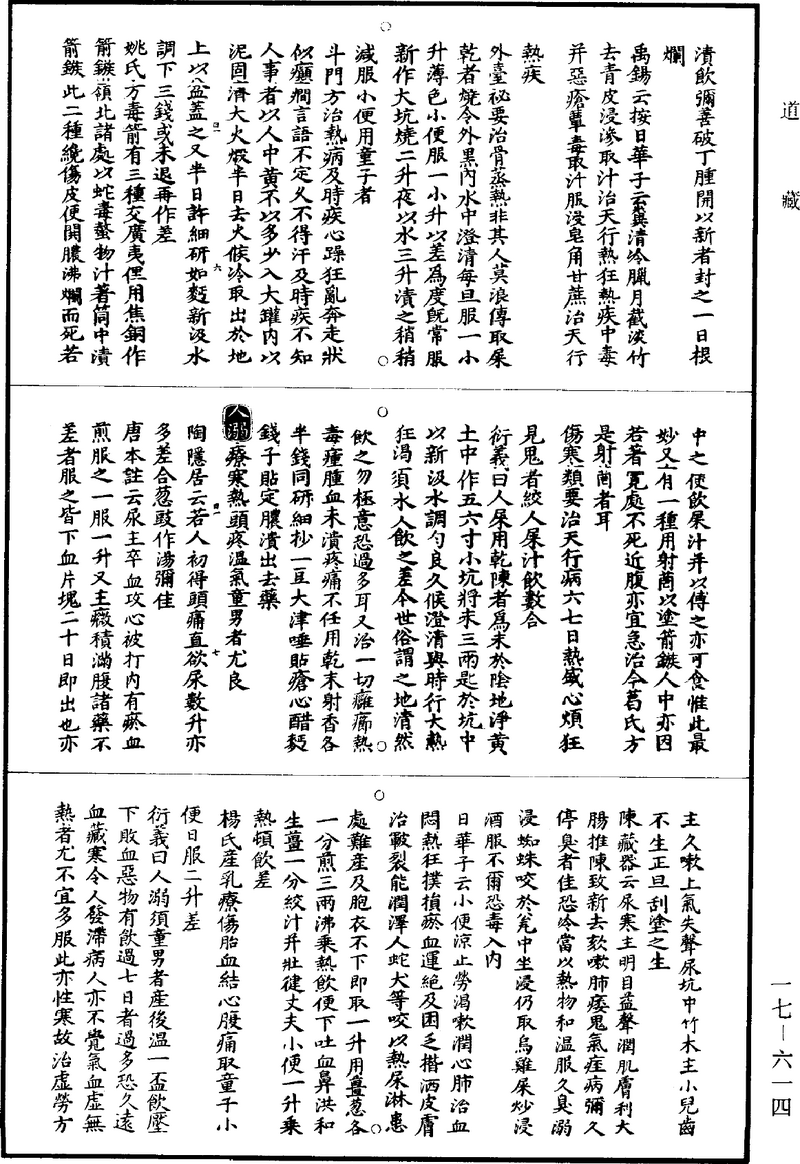 道藏
漬飲彌善破丁腫開以新者封之一日根
爛
禹錫云按日華子云糞清冷臘月截淡竹
去青皮浸滲取汁治天行熱狂熱疾中毒
并惡瘡蕈毒取汁服浸皂角甘蔗治天行
熱疾
外臺祕要治骨蒸熱非其人莫浪傳取屎
乾者燒令外黑內水中澄清每旦服一小
升薄色小便服一小升以差為度既常服
新作大坑燒二升夜以水三升漬之稍稍
減服小便用童子者
斗門方治熱病及時疾心躁狂亂奔走狀
似癲癇言語不定久不得汗及時疾不知
人事者以人中黃不以多少入大罐內以
泥固濟大火煅半日去火候冷取出於地
上以盆蓋之又半日許細研如麪新汲水
調下三錢或未退再作差
姚氏方毒箭有三種交廣夷俚用焦銅作
箭鏃嶺北諸處以蛇毒螫物汁著筒中漬
箭鏃此二種纔傷皮便開膿沸爛而死若
中之便飲屎汁并以傅之亦可食惟此最
妙又有一種用射菵以塗箭鏃人中亦因
若著寬處不死近腹亦宜急治今葛氏方
是射菵者耳
傷寒類要治天行病六七日熱盛心煩狂
見鬼者絞人屎汁飲數合
衍義曰人屎用乾陳者為末於陰地淨黃
土中作五六寸小坑將末三兩匙於坑中
以新汲水調勻良久候澄清與時行大熱
狂渴須水人飲之差今世俗謂之地清然
飲之勿極意恐過多耳又治一切癰癤熱
毒瘇腫血未潰疼痛不任用乾末射香各
半錢同研細抄一豆大津唾貼瘡心醋麪
錢子貼定膿潰出去藥
人溺療寒熱頭疼溫氣童男者尤良
陶隱居云若人初得頭痛直飲尿數升亦
多差合葱豉作湯彌佳
唐本註云尿主卒血攻心被打內有瘀血
煎服之一服一升又主癥積滿腹諸藥不
差者服之皆下血片塊二十日即出也亦
主久嗽上氣失聲尿坑中竹木主小兒齒
不生正旦刮塗之生
陳藏器云尿寒主明目益聲潤肌膚利大
腸推陳致新去欬嗽肺痿鬼氣痓病彌久
停臭者佳恐冷當以熱物和溫服久臭溺
浸蜘蛛咬於瓮中坐浸仍取烏雞屎炒浸
酒服不爾恐毒入內
日華子云小便涼止勞渴嗽潤心肺治血
悶熱狂撲損瘀血運絕及困乏揩洒皮膚
治皸裂能潤澤人蛇犬等咬以熱尿淋患
處難產及胞衣不下即取一升用薑葱各
一分煎三兩沸乘熱飲便下吐血鼻洪和
生薑一分絞汁并壯健丈夫小便一升乘
熱頓飲差
楊氏產乳療傷胎血結心腹痛取童子小
便日服二升差
衍義曰人溺須童男者產後溫一盃飲壓
下敗血惡物有飲過七日者過多恐久遠
血藏寒令人發滯病人亦不覺氣血虛無
熱者尤不宜多服此亦性寒故治虛勞方
一七—六一四